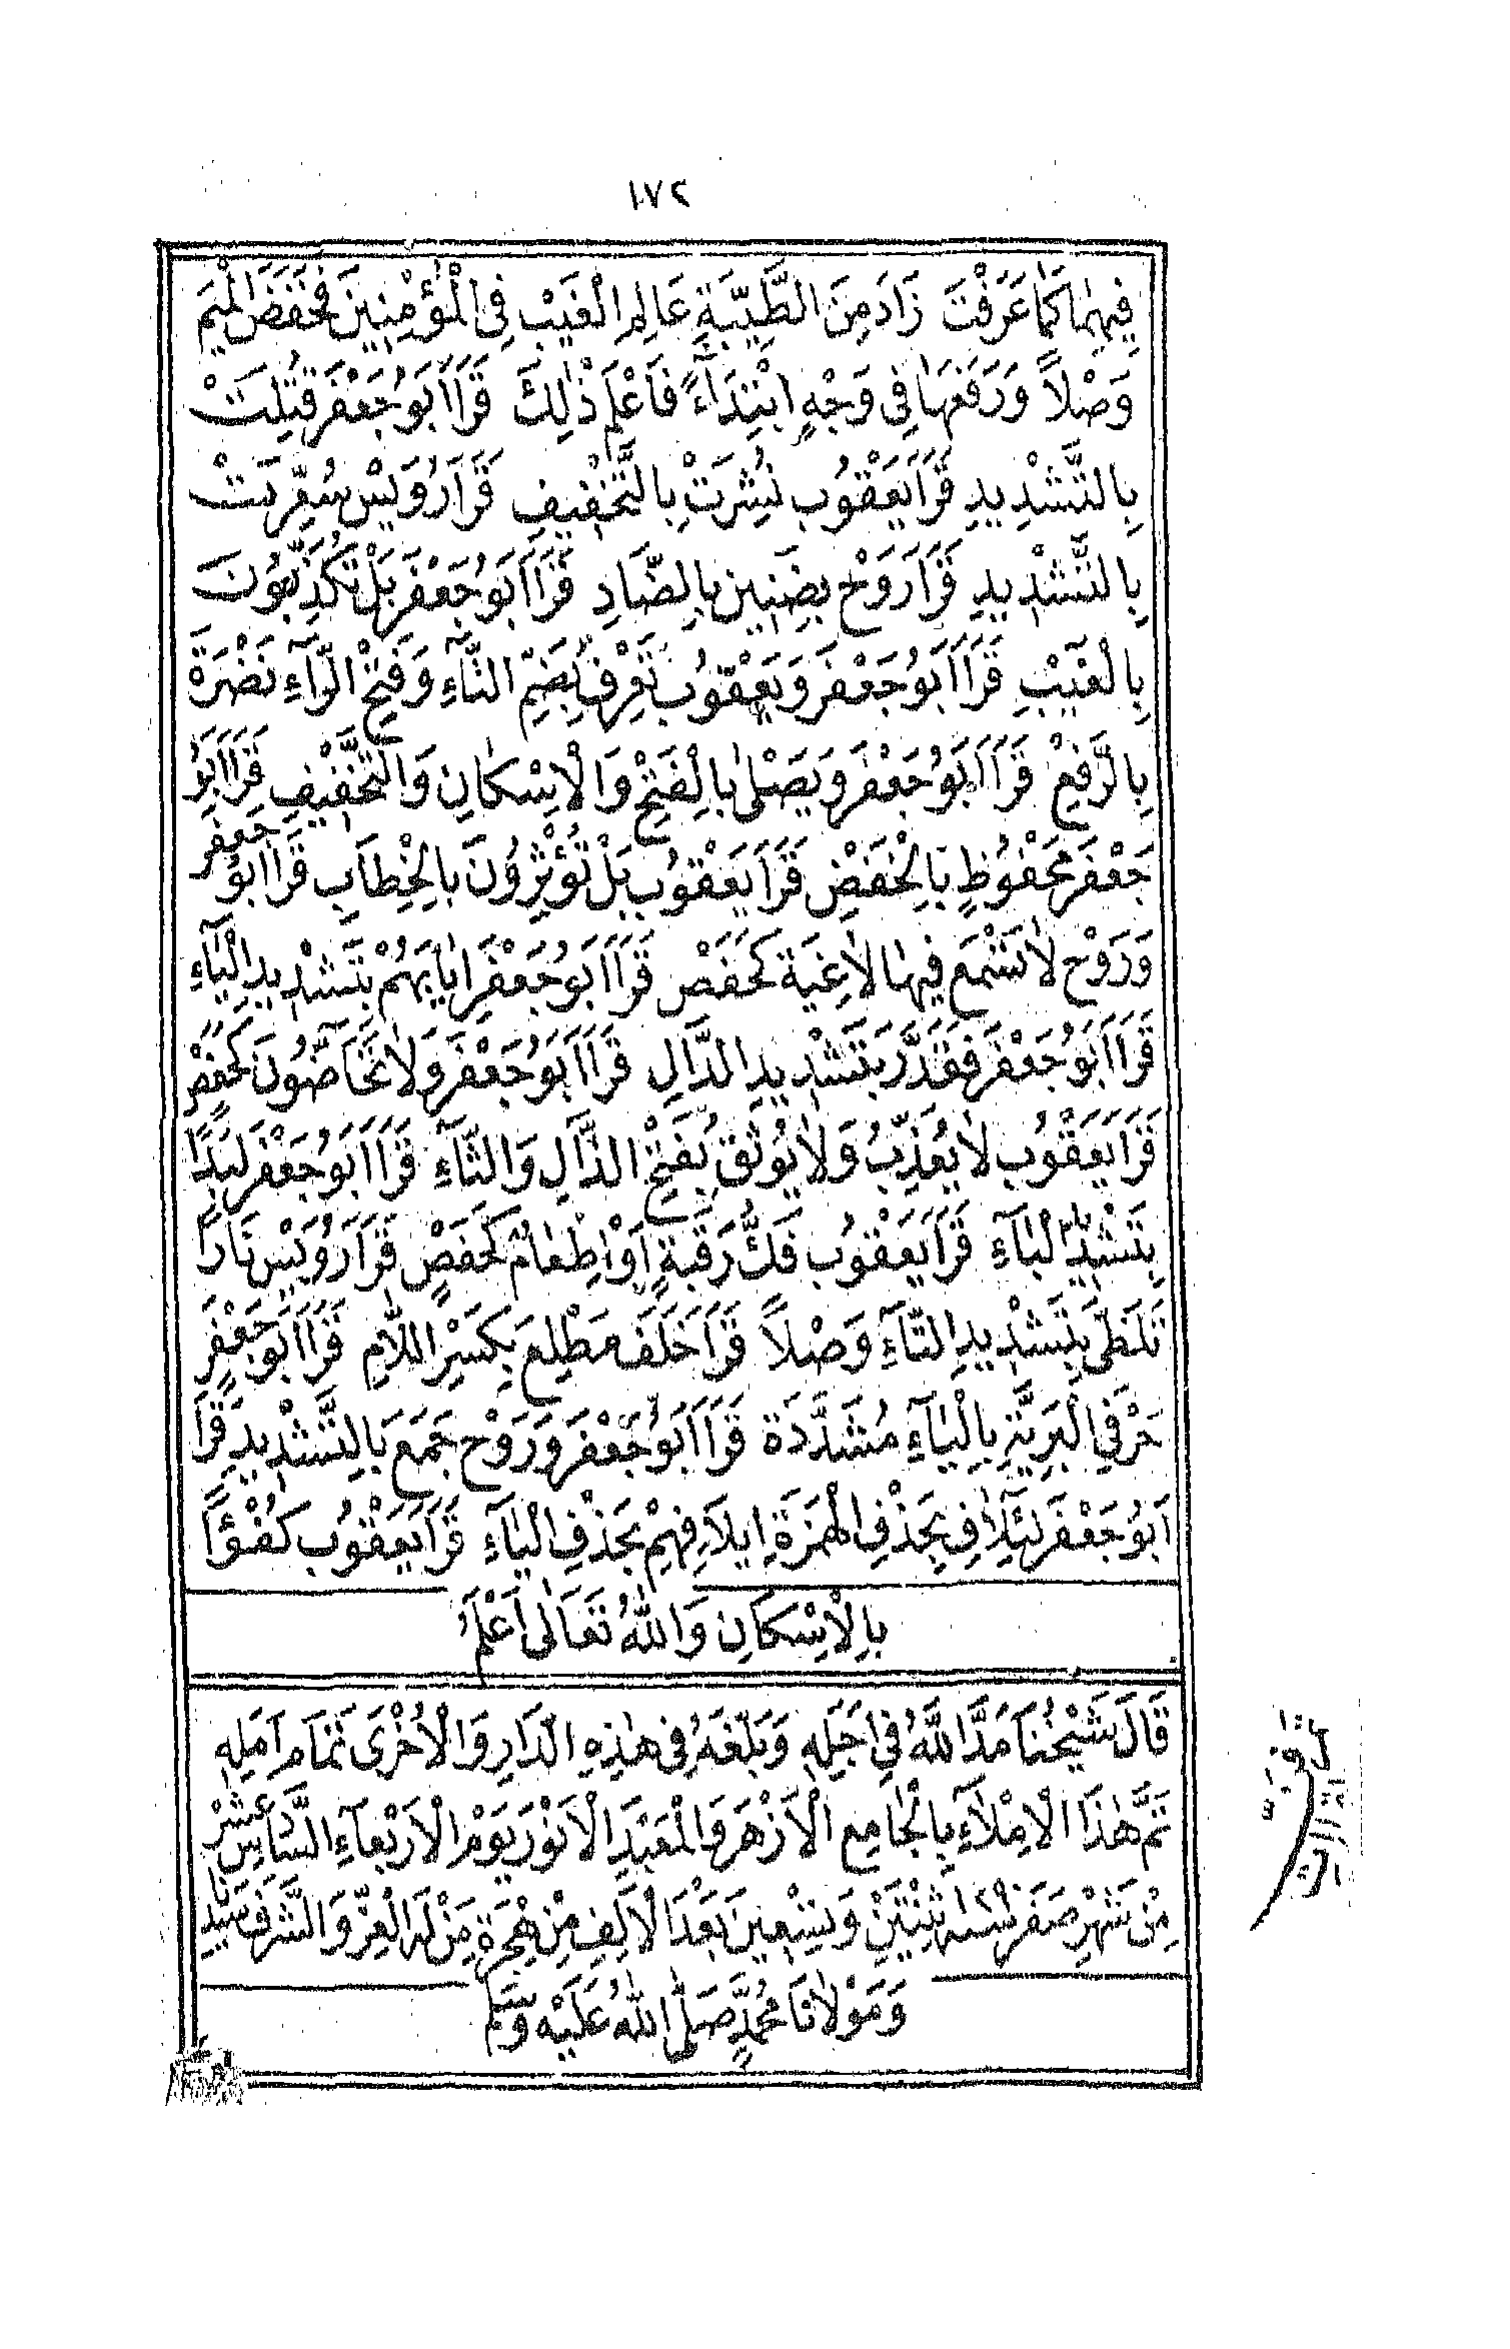 ١٧٢
فِيهِمَا كَمَا عَرَفْتَ زَادَ مِنَ الطَّيِّبَةِ عَالِمِ الْغَيْبِ فِى الْمُؤْمِنِينَ فَخَفَضَ الْمِيمَ
وَصْلاً وَرَفَعَهَا فِى وَجْهٍ ابْتِدَآءً فَاعْلَمْ ذٰلِكَ قَرَأَ اَبُو جَعْفَرَ قُتِّلَتْ
بِالتَّشْدِيدِ قَرَأَ يَعْقُوبُ نُشِرَتْ بِالتَّخْفِيفِ قَرَأَ رُوَيْسٌ سُعِّرَتْ
بِالتَّشْدِيدِ قَرَأَ رَوْحٌ بِضَنِينٍ بِالضَّادِ قَرَأَ اَبُو جَعْفَرَ بَلْ تُكَذِّبُونَ
بِالْغَيْبِ قَرَأَ اَبُو جَعْفَرَ وَيَعْقُوبُ تُعْرَفُ بِضَمِّ التَّآءِ وَفَتْحِ الرَّآءِ نَضْرَةُ
بِالرَّفْعِ قَرَأَ اَبُو جَعْفَرَ وَيَصْلٰى بِالْفَتْحِ وَالْاِسْكَانِ وَالتَّخْفِيفِ قَرَأَ اَبُو
جَعْفَرَ مَحْفُوظٍ بِالْخَفْضِ قَرَأَ يَعْقُوبُ بَلْ تُؤْثِرُونَ بِالْخِطَابِ قَرَأَ اَبُو جَعْفَر
وَرَوْحٌ لَا تَسْمَعُ فِيهَا لَاغِيَةً كَحَفْصٍ قَرَأَ اَبُو جَعْفَرَ اِيَّابَهُمْ بِتَشْدِيدِ الْيَآءِ
قَرَأَ اَبُو جَعْفَرَ فَقَدَّرَ بِتَشْدِيدِ الدَّالِ قَرَأَ اَبُو جَعْفَرَ وَلَا تَحَآضُّونَ كَحَفْصٍ
قَرَأَ يَعْقُوبُ لَا يُعَذَّبُ وَلَا يُوثَقُ بِفَتْحِ الذَّالِ وَالثَّآءِ قَرَأَ اَبُو جَعْفَرَ لُبَّدًا
بِتَشْدِيدِ الْبَآءِ قَرَأَ يَعْقُوبُ فَكُّ رَقَبَةٍ اَوْ اِطْعَامٌ كَحَفْصٍ قَرَأَ رُوَيْسٌ نَارًا
تَلَظّٰى بِتَشْدِيدِ التَّآءِ وَصْلاً قَرَأَ خَلَفٌ مَطْلِعِ بِكَسْرِ اللَّامِ قَرَأَ اَبُو جَعْفَرٍ
حَرْفَىِ الْبَرِيَّةِ بِالْيَآءِ مُشَدَّدَةً قَرَأَ اَبُو جَعْفَرَ وَرَوْحٌ جَمَّعَ بِالتَّشْدِيدِ قَرَأَ
اَبُو جَعْفَرَ لِيلَافِ بِحَذْفِ الْهَمْزَةِ اِلَافِهِمْ بِحَذْفِ الْيَآءِ قَرَأَ يَعْقُوبُ كُفْؤًا
بِالْاِسْكَانِ وَاللّٰهُ تَعَالٰى اَعْلَمُ
قَالَ شَيْخُنَا مَدَّ اللّٰهُ فِى اَجَلِهِ وَبَلَّغَهُ فِى هٰذِهِ الدَّارِ وَالْاُخْرٰى تَمَامَ اَمَلِهِ
تَمَّ هٰذَا الْاِمْلَآءُ بِالْجَامِعِ الْاَزْهَرِ وَالْمَعْبَدِ الْاَنْوَرِ يَوْمَ الْاَرْبِعَآءِ السَّادِسَ عَشَرَ
مِنْ شَهْرِ صَفَرَ سنة ثِنْتَيْنِ وَتِسْعِينَ بَعْدَ الْاَلْفِ مِنْ هِجْرَةِ مَنْ لَهُ الْعِزُّ وَالشَّرَفُ سَيِّدِنَا
وَمَوْلَانَا مُحَمَّدٍ صَلَّى اللّٰهُ عَلَيْهِ وَسَلَّمَ